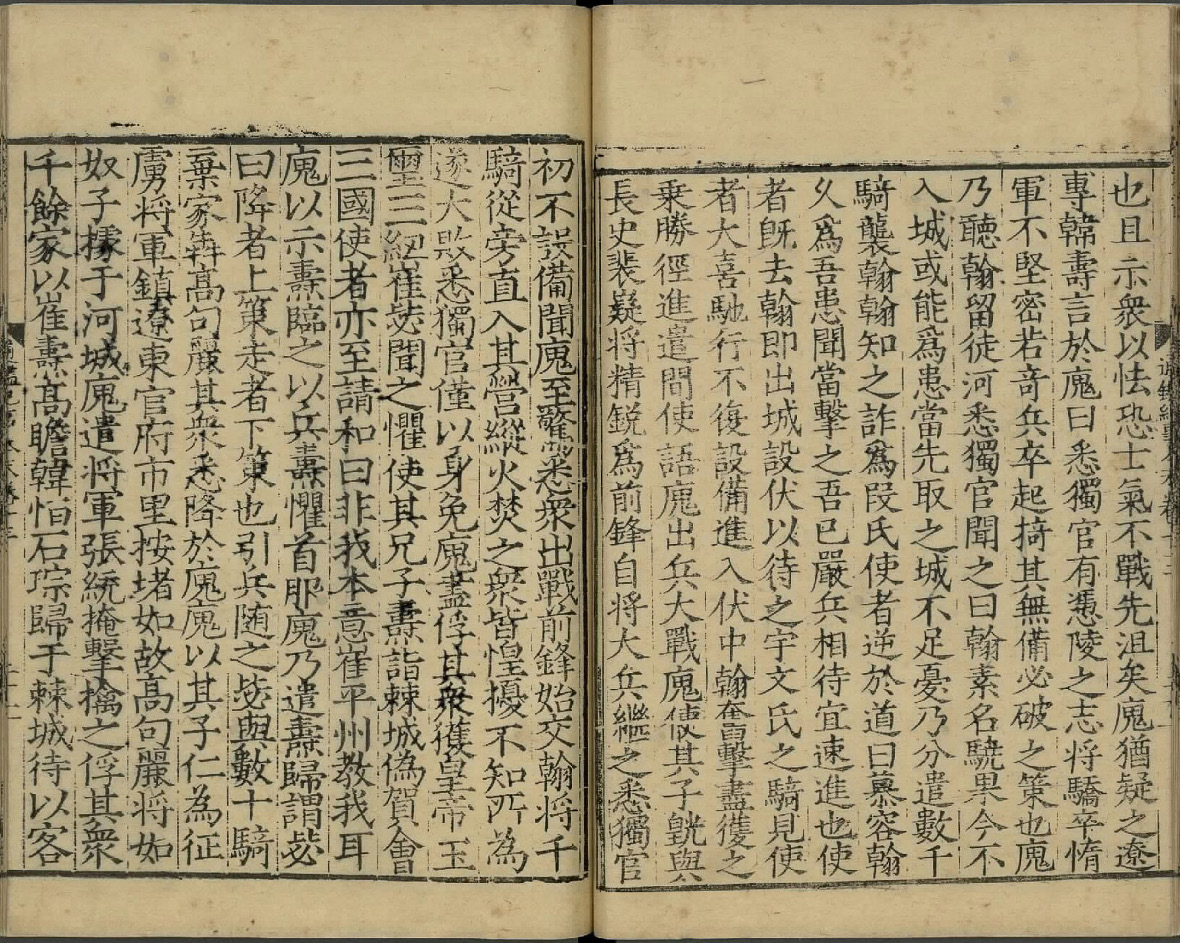 也且示衆以怯恐士氣不戰先沮矣廆猶疑之遼
專韓壽言於廆曰悉獨官有憑陵之志將驕卒惰
軍不堅密若竒兵卒起掎其無備必破之策也廆
乃聽翰留徒河悉獨官聞之曰翰素名驍果今不
入城或能爲患當先取之城不足憂乃分遣數千
騎襲翰翰知之詐爲段氏使者逆於道曰慕容翰
乆爲吾患聞當擊之吾已嚴兵相待宜速進也使
者旣去翰即出城設伏以待之宇文氏之騎見使
者大喜馳行不復設備進入伏中翰奮擊盡獲之
乗勝徑進遣間使語廆出兵大戰廆使其子皝與
長史裴嶷將精鋭爲前鋒自將大兵繼之悉獨官
初不設備聞廆至驚悉衆出戰前鋒始交翰將千
騎從旁直入其營縱火焚之衆皆惶擾不知所為
遂大敗悉獨官僅以身免廆盡俘其衆獲皇帝玉
璽三紐崔毖聞之懼使其兄子燾詣棘城偽賀會
三國使者亦至請和曰非我本意崔平州教我耳
廆以示燾臨之以兵燾懼首服廆乃遣燾歸謂毖
曰降者上策走者下策也引兵随之毖與數十騎
棄家犇高句麗其衆悉降於廆廆以其子仁為征
虜將軍鎮遼東官府市里按堵如故高句麗將如
奴子據于河城廆遣將軍張統掩擊擒之俘其衆
千餘家以崔燾高瞻韓恒石琮歸于棘城待以客